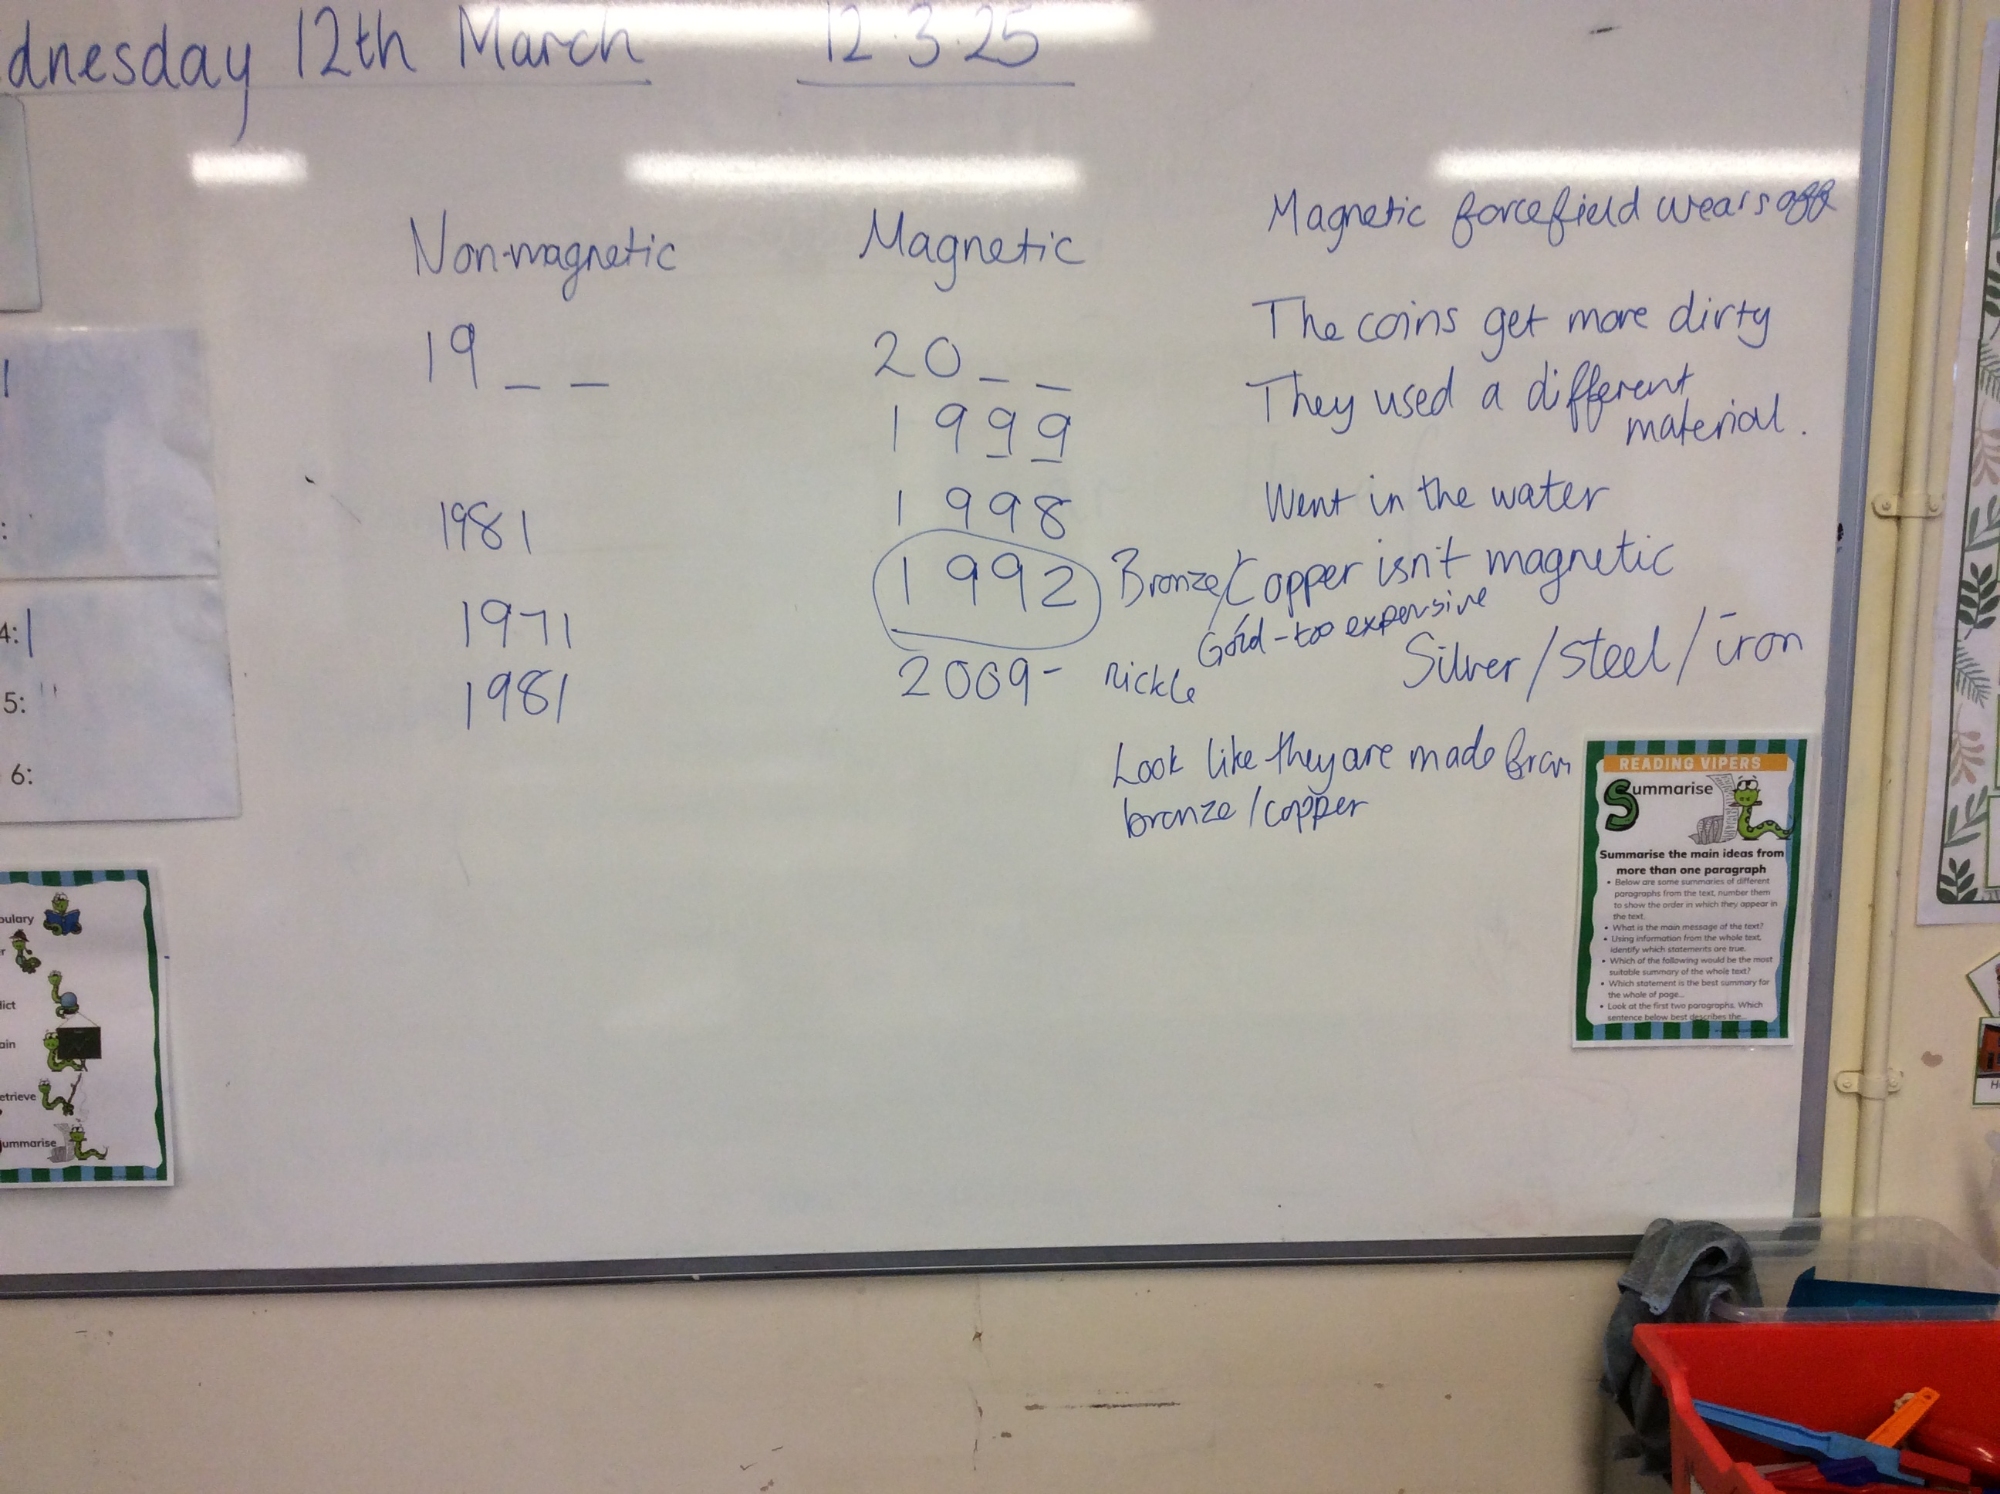 dnesday 12th March 12.3.25
Non-magnetic
19_ _
1981
1971
1981
Magnetic
20_ _
1999
1998
1992
2009-
Magnetic forcefield wears off
The coins get more dirty
They used a different
material.
Went in the water
Bronze/Copper isn't magnetic
Gold - too expensive
nickle
Silver/steel/iron
Look like they are made from
bronze/copper
4:1
5:
6:
bulary
r
dict
ain
etrieve
ummarise
READING VIPERS
Summarise
Summarise the main ideas from
more than one paragraph
• Below are some summaries of different
paragraphs from the text, number them
to show the order in which they appear in
the text.
• What is the main message of the text?
• Using information from the whole text,
identify which statements are true.
• Which of the following would be the most
suitable summary of the whole text?
• Which statement is the best summary for
the whole of page...
• Look at the first two paragraphs. Which
sentence below best describes the...